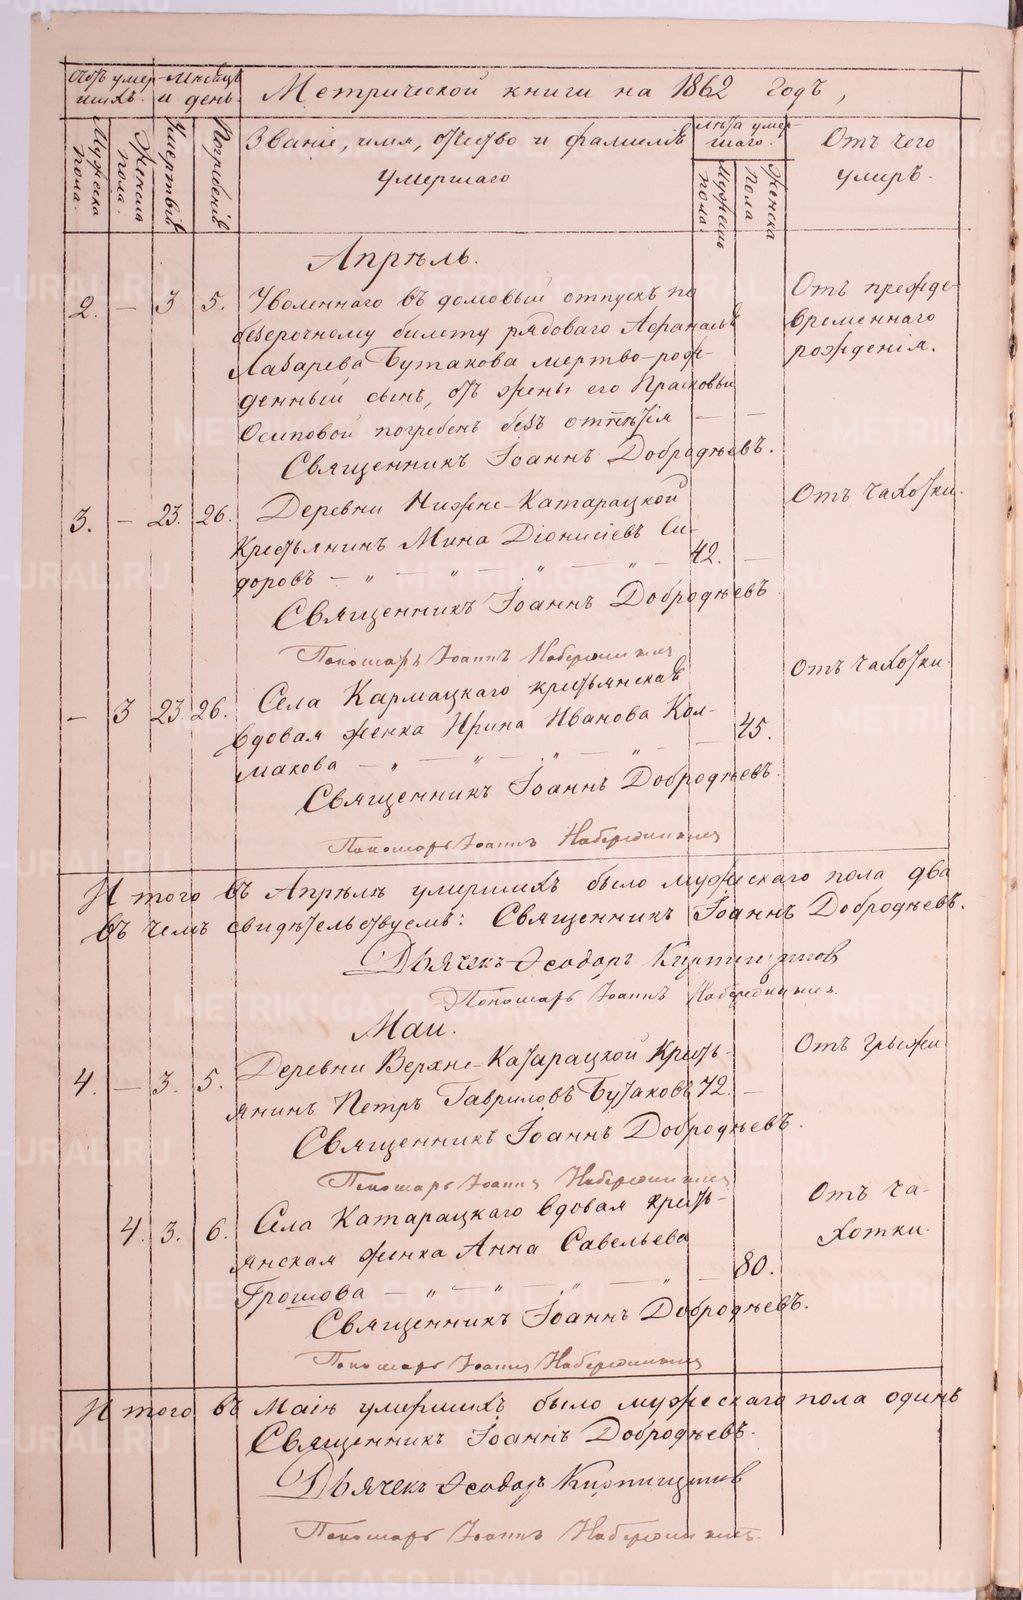 Метрической книги на 1862 годъ,
Мужеска пола.
Женска пола.
Умертвія
Погребенія
Званіе, имя, отчество и фамилія
умершаго
Лѣта умер-
шаго.
Мужеска пола.
Женска пола
Отъ чего
умеръ.
Апрѣль.
2. — 3 5. Уволеннаго въ домовый отпускъ по Отъ прежде
безсрочному билету рядоваго Афанасья временнаго
Лазарева Бутакова мертво-рож- рожденія.
денный сынъ, отъ жены его Прасковьи
Осиповой погребенъ безъ отпѣтія — —
Священникъ Іоаннъ Добродѣевъ.
3. — 23. 26. Деревни Нижне-Катарацкой Отъ чахотки.
Крестьянинъ Мина Діонисіевъ Си-
доровъ — „ — „ — „ — „ — 42. —
Священникъ Іоаннъ Добродѣевъ
Пономарь Іоаннъ
— 3 23. 26. Села Кармацкаго крестьянская Отъ чахотки.
вдовая женка Ирина Иванова Кол-
макова — „ — „ — „ — „ — 45.
Священникъ Іоаннъ Добродѣевъ.
Пономарь Іоаннъ
И того въ Апрѣлѣ умершихъ было мужескаго пола два
въ чемъ свидѣтельствуемъ: Священникъ Іоаннъ Добродѣевъ.
Дьячекъ Ѳеодоръ
Пономарь Іоаннъ
Маи.
4. — 3. 5. Деревни Верхне-Катарацкой Кресть- Отъ грыжи
янинъ Петръ Гавриловъ Бутаковъ 72. —
Священникъ Іоаннъ Добродѣевъ.
Пономарь Іоаннъ
4. 3. 6. Села Катарацкаго вдовая кресть- Отъ ча-
янская женка Анна Савельева хотки.
Грошова — „ — „ — „ — „ — 80.
Священникъ Іоаннъ Добродѣевъ.
Пономарь Іоаннъ
И того въ Маіѣ умершихъ было мужескаго пола одинъ
Священникъ Іоаннъ Добродѣевъ.
Дьячекъ Ѳеодоръ
Пономарь Іоаннъ
METRIKI.GASO-URAL.RU